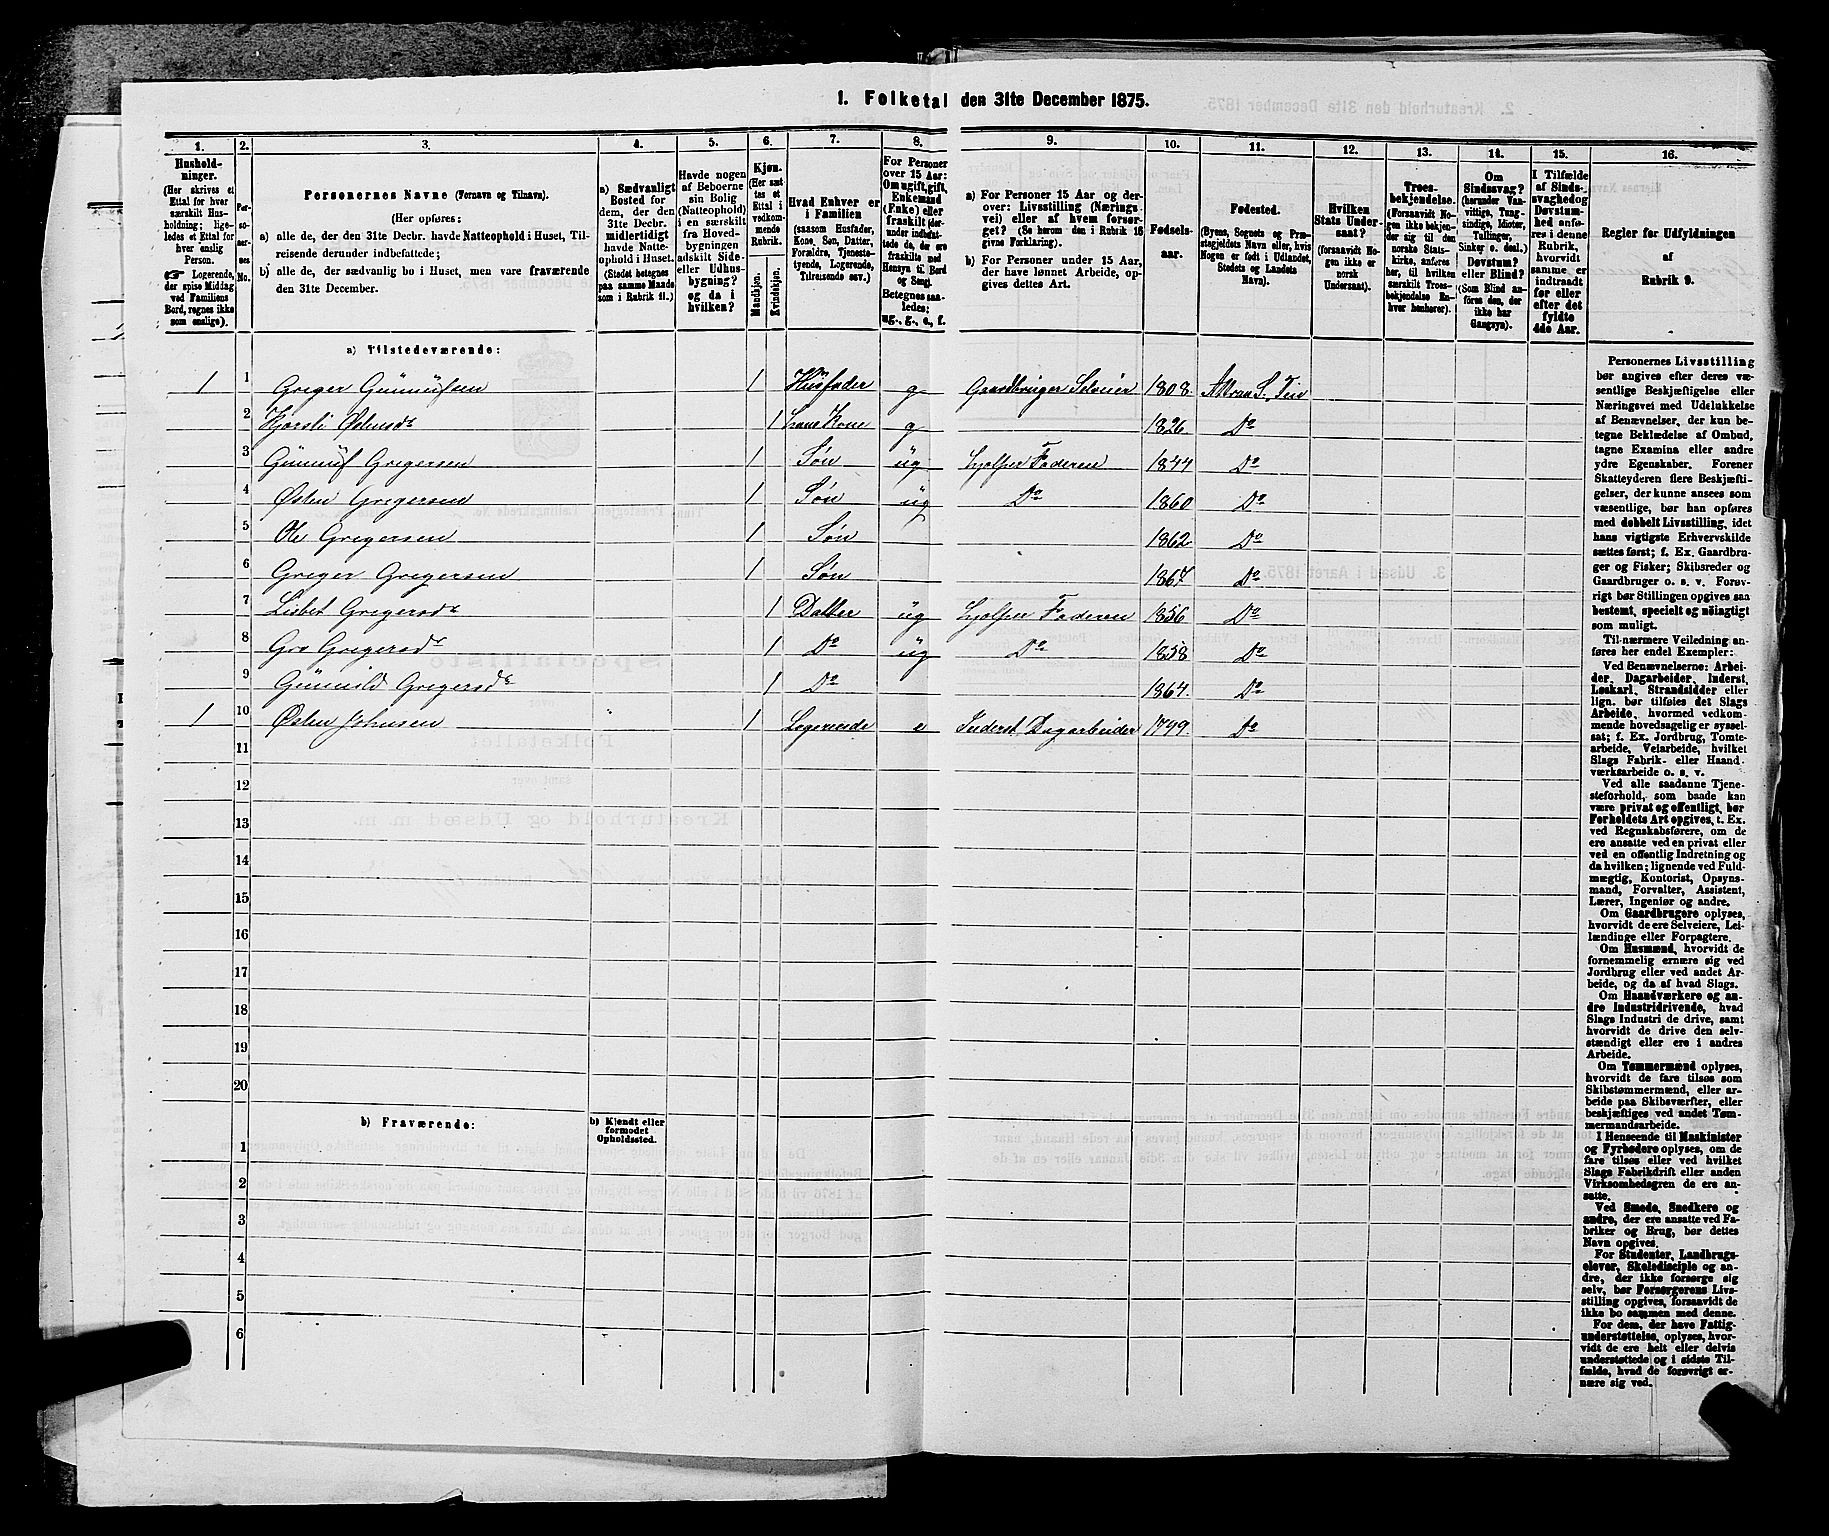 1. Folketal den 31te December 1875.
1. 2. 3. 4. 5. 6. 7. 8. 9. 10. 11. 12. 13. 14. 15. 16.
Hushold-
ninger.
(Her skrives et
Ettal for hver
særskilt Hus-
holdning; lige-
ledes et Ettal for
hver enslig
Person.
☞ Logerende,
der spise Middag
ved Familiens
Bord, regnes ikke
som enslige).
Per-
so-
ner-
nes
No.
Personernes Navne (Fornavn og Tilnavn).
(Her opføres:
a) alle de, der den 31te Decbr. havde Natteophold i Huset, Til-
reisende derunder indbefattede;
b) alle de, der sædvanlig bo i Huset, men vare fraværende
den 31te December.
a) Sædvanligt
Bosted for
dem, der den
31te Decbr.
midlertidigt
havde Natte-
ophold i Huset.
(Stedet betegnes
paa samme Maade
som i Rubrik 11.)
Havde nogen
af Beboerne
sin Bolig
(Natteophold)
i en særskilt
fra Hoved-
bygningen
adskilt Side-
eller Udhus-
bygning?
og da i
hvilken?
Kjøn.
(Her sæt-
tes et
Ettal i
vedkom-
mende
Rubrik.
Mandkjøn.
Kvindekjøn.
Hvad Enhver er
i Familien
(saasom Husfader,
Kone, Søn, Datter,
Forældre, Tjeneste-
tyende, Logerende,
Tilreisende osv.)
For Personer
over 15 Aar:
Om ugift, gift,
Enkemand
(Enke) eller
fraskilt (der-
under indbefat-
tede da, de ere
fraskilte med
Hensyn til Bord
og Seng).
Betegnes saa-
ledes:
ug., g., e., f.
a) For Personer 15 Aar og der-
over: Livsstilling (Nærings-
vei) eller af hvem forsør-
get? (Se herom den i Rubrik 16
givne Forklaring).
b) For Personer under 15 Aar,
der have lønnet Arbeide, op-
gives dettes Art.
Fødsels-
aar.
Fødested.
(Byens, Sognets og Præ-
stegjeldets Navn eller, hvis
Nogen er født i Udlandet,
Stedets og Landets
Navn).
Hvilken
Stats Under-
saat?
(forsaavidt No-
gen ikke er
norsk
Undersaat).
Troes-
bekjendelse.
(Forsaavidt No-
gen ikke bekjen-
der sig til den
norske Stats-
kirke, anføres
her, til hvilken
særskilt Troes-
bekjendelse En-
hver henhører).
Om
Sindssvag?
(herunder Van-
vittige, Tung-
sindige, Idioter,
Tullinger,
Sinker o. desl.)
Døvstum?
eller Blind?
(Som Blind an-
føres den, der
ikke har
Gangsyn).
I Tilfælde
af Sinds-
svaghed og
Døvstum-
hed anfø-
res i denne
Rubrik,
hvorvidt
samme er
indtraadt
før eller
efter det
fyldte
4de Aar.
Regler for Udfyldningen
af
Rubrik 9.
a) Tilstedeværende:
1 1 Greger Gunnulfsen 1 Husfader g Gaardbruger Selveier 1808. Attraa S. Tin
2 Kjersti Østensdr 1 hans Kone g 1826. Do
3 Gunnulf Gregersen 1 Søn ug hjælper Faderen 1844 Do
4 Østen Gregersen 1 Søn ug Do 1860 Do
5 Ole Gregersen 1 Søn 1862 Do
6 Greger Gregersen 1 Søn 1867 Do
7 Lisbet Gregersdr 1 Datter ug hjælper Faderen 1856 Do
8 Gro Gregersdr 1 Do ug Do 1858 Do
9 Gunnild Gregersdr 1 Do 1864. Do
1 10 Østen Johnsen 1 Logerende e Inderst Dagarbeider 1799. Do
11
12
13
14
15
16
17
18
19
20
b) Fraværende: b) Kjendt eller
formodet
Opholdssted.
1
2
3
4
5
6
Personernes Livsstilling
bør angives efter deres væ-
sentlige Beskjæftigelse eller
Næringsvei med Udelukkelse
af Benævnelser, der kun be-
tegne Beklædelse af Ombud,
tagne Examina eller andre
ydre Egenskaber. Forener
Skatteyderen flere Beskjæfti-
gelser, der kunne ansees som
væsentlige, bør han opføres
med dobbelt Livsstilling, idet
hans vigtigste Erhvervskilde
sættes først; f. Ex. Gaardbru-
ger og Fisker; Skibsreder og
Gaardbruger o. s. v. Forøv-
rigt bør Stillingen opgives saa
bestemt, specielt og nøiagtigt
som muligt.
Til nærmere Veiledning an-
føres her endel Exempler:
Ved Benævnelserne: Arbei-
der, Dagarbeider, Inderst,
Løskarl, Strandsidder eller
lign. bør tilføies det Slags
Arbeide, hvormed vedkom-
mende hovedsagelig er syssel-
sat; f. Ex. Jordbrug, Tomte-
arbeide, Veiarbeide, hvilket
Slags Fabrik- eller Haand-
værksarbeide o. s. v.
Ved alle saadanne Tjene-
steforhold, som baade kan
være privat og offentligt, bør
Forholdets Art opgives, t. Ex.
ved Regnskabsførere, om de
ere ansatte ved en privat eller
ved en offentlig Indretning og
da hvilken; lignende ved Fuld-
mægtig, Kontorist, Opsyns-
mand, Forvalter, Assistent,
Lærer, Ingeniør og andre.
Om Gaardbrugere oplyses,
hvorvidt de ere Selveiere, Lei-
lændinge eller Forpagtere.
Om Husmænd, hvorvidt de
fornemmelig ernære sig ved
Jordbrug eller ved andet Ar-
beide, og da af hvad Slags.
Om Haandværkere og an-
dre Industridrivende, hvad
Slags Industri de drive, samt
hvorvidt de drive den selv-
stændigt eller ere i andres
Arbeide.
Om Tømmermænd oplyses,
hvorvidt de fare tilsøs som
Skibstømmermænd, eller ar-
beide paa Skibsværfter, eller
beskjæftiges ved andet Tøm-
mermandsarbeide.
I Henseende til Maskinister
og Fyrbødere oplyses, om de
fare tilsøs eller ved hvilket
Slags Fabrikdrift eller anden
Virksomhedsgren de ere an-
satte.
Ved Smede, Snedkere og
andre, der ere ansatte ved Fa-
briker og Brug, bør dettes
Navn opgives.
For Studenter, Landbrugs-
elever, Skoledisciple og an-
dre, der ikke forsørge sig
selv, bør Forsørgerens Livs-
stilling opgives, forsaavidt de
ikke bo sammen med denne.
For dem, der have Fattig-
understøttelse, oplyses, hvor-
vidt de ere helt eller delvis
understøttede og i sidste Til-
fælde, hvad de forøvrigt er-
nære sig ved.